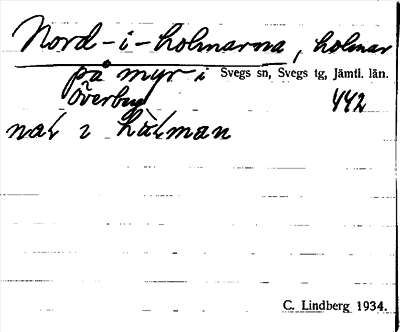 Nord-i-holmarna, holmar
på myr i Svegs sn, Svegs tg, Jämtl. län.
Överbyn 442
C. Lindberg 1934.